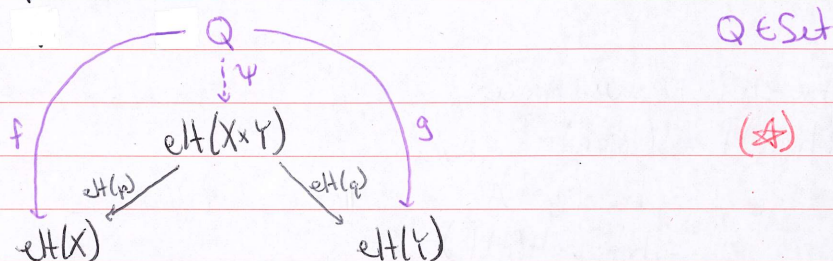 Q Q ∈ Set
ψ
f elt(X×Y) g (☆)
elt(p) elt(q)
elt(X) elt(Y)